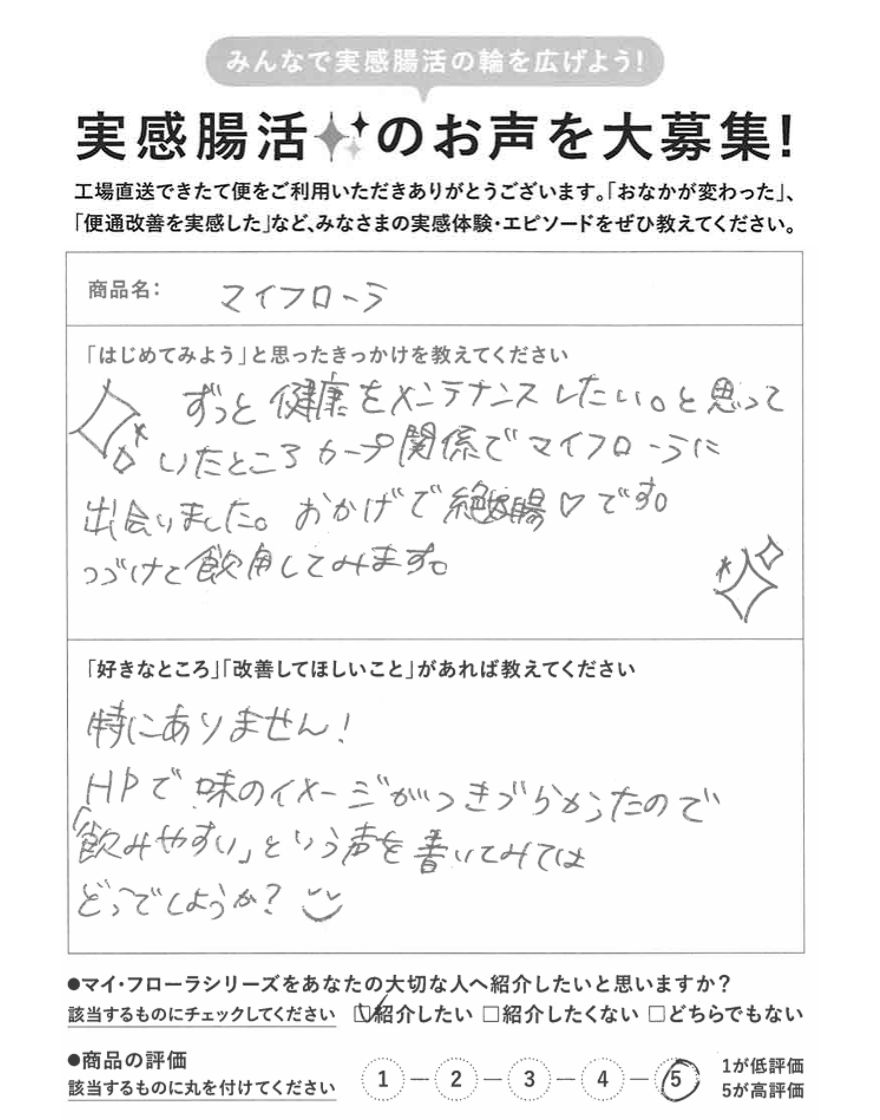 みんなで実感腸活の輪を広げよう!
実感腸活のお声を大募集!
工場直送できたて便をご利用いただきありがとうございます。「おなかが変わった」、
「便通改善を実感した」など、みなさまの実感体験・エピソードをぜひ教えてください。
商品名: マイフローラ
「はじめてみよう」と思ったきっかけを教えてください
ずっと健康をメンテナンスしたい。と思って
いたところカープ関係でマイフローラに
出会いました。おかげで絶腸♡です。
つづけて飲用してみます。
「好きなところ」「改善してほしいこと」があれば教えてください
特にありません!
HPで味のイメージがつきづらかったので
「飲みやすい」という声を書いてみては
どうでしょうか?
●マイ・フローラシリーズをあなたの大切な人へ紹介したいと思いますか?
該当するものにチェックしてください ☑紹介したい □紹介したくない □どちらでもない
●商品の評価
該当するものに丸を付けてください 1 — 2 — 3 — 4 — 5
1が低評価
5が高評価